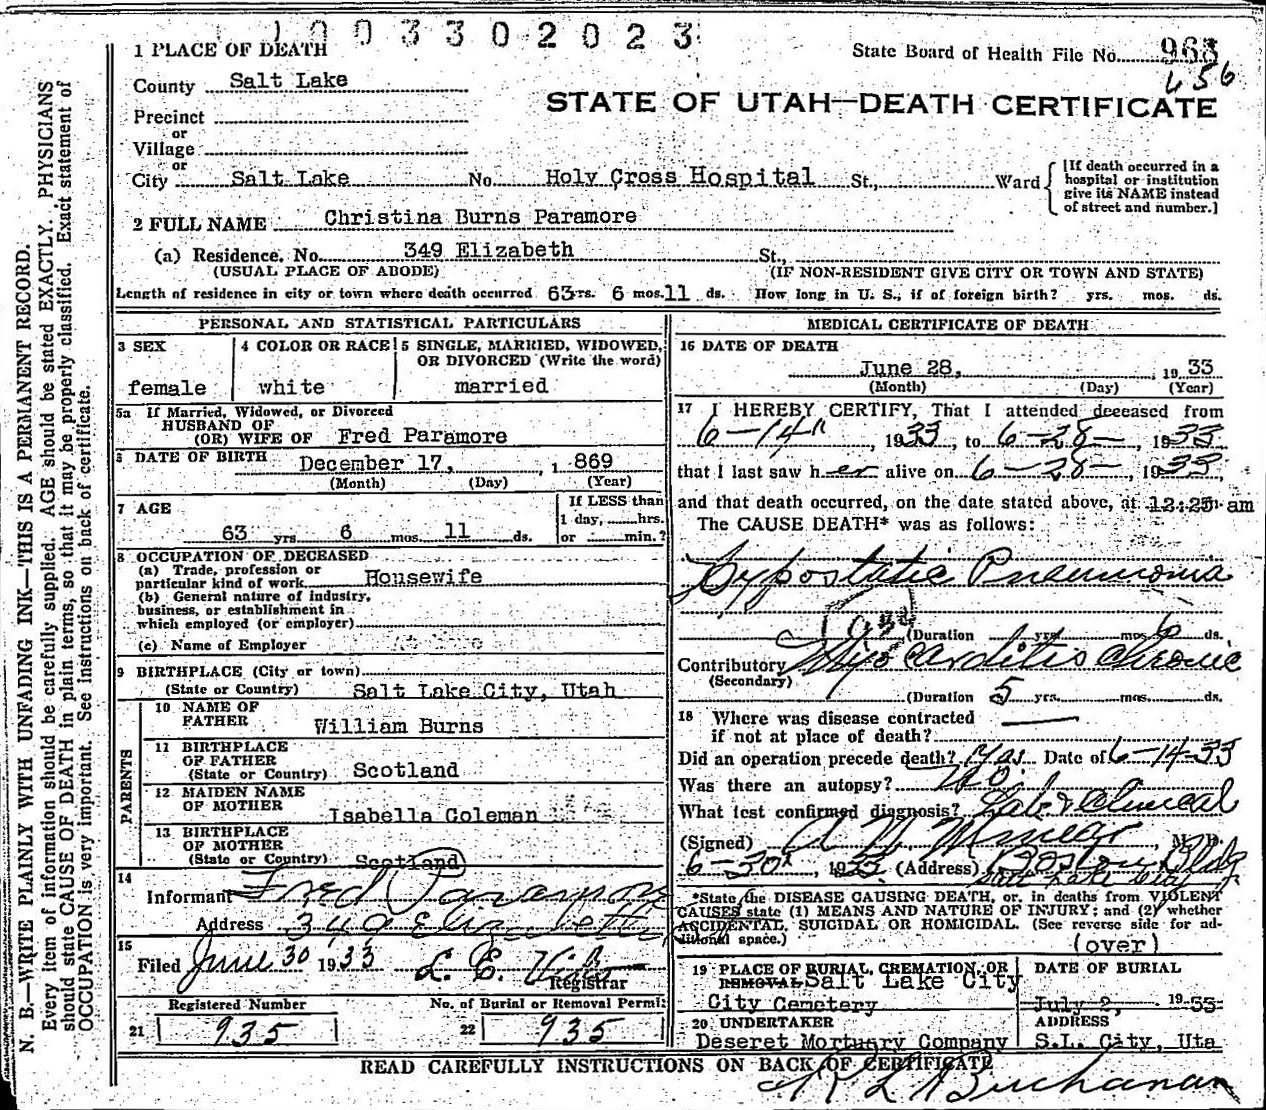 1003302023
1 PLACE OF DEATH
State Board of Health File No. 963
County Salt Lake
656
STATE OF UTAH—DEATH CERTIFICATE
Precinct
or
Village
or
City Salt Lake No. Holy Cross Hospital St., Ward
[If death occurred in a
hospital or institution
give its NAME instead
of street and number.]
2 FULL NAME Christina Burns Paramore
(a) Residence. No. 349 Elizabeth St.,
(USUAL PLACE OF ABODE) (IF NON-RESIDENT GIVE CITY OR TOWN AND STATE)
Length of residence in city or town where death occurred 63 yrs. 6 mos. 11 ds. How long in U. S., if of foreign birth? yrs. mos. ds.
PERSONAL AND STATISTICAL PARTICULARS
3 SEX
female
4 COLOR OR RACE
white
5 SINGLE, MARRIED, WIDOWED,
OR DIVORCED (Write the word)
married
5a If Married, Widowed, or Divorced
HUSBAND OF
(OR) WIFE OF Fred Paramore
6 DATE OF BIRTH December 17, 1869
(Month) (Day) (Year)
7 AGE
63 yrs 6 mos. 11 ds.
If LESS than
1 day, hrs.
or min.?
8 OCCUPATION OF DECEASED
(a) Trade, profession or
particular kind of work Housewife
(b) General nature of industry,
business, or establishment in
which employed (or employer)
(c) Name of Employer
9 BIRTHPLACE (City or town)
(State or Country) Salt Lake City, Utah
PARENTS
10 NAME OF
FATHER William Burns
11 BIRTHPLACE
OF FATHER
(State or Country) Scotland
12 MAIDEN NAME
OF MOTHER Isabella Coleman
13 BIRTHPLACE
OF MOTHER
(State or Country) Scotland
14
Informant Fred Paramore
Address 349 Elizabeth
15
Filed June 30 1933 L. E.
Registrar
Registered Number No. of Burial or Removal Permit
21 935 22 935
MEDICAL CERTIFICATE OF DEATH
16 DATE OF DEATH
June 28, 1933
(Month) (Day) (Year)
17 I HEREBY CERTIFY, That I attended deceased from
6-14", 1933, to 6-28-, 1933
that I last saw her alive on 6-28-, 1933,
and that death occurred, on the date stated above, at 12:25 am
The CAUSE DEATH* was as follows:
Hypostatic Pneumonia
(Duration yrs. mos. 6 ds.
Contributory Myocarditis Chronic
(Secondary)
(Duration 5 yrs. mos. ds.
18 Where was disease contracted
if not at place of death?
Did an operation precede death? Yes Date of 6-14-33
Was there an autopsy? No.
What test confirmed diagnosis? Lab & Clinical
(Signed) M. D.
6-30", 1933 (Address) Boston Bldg
Salt Lake City
*State the DISEASE CAUSING DEATH, or, in deaths from VIOLENT
CAUSES state (1) MEANS AND NATURE OF INJURY; and (2) whether
ACCIDENTAL, SUICIDAL OR HOMICIDAL. (See reverse side for ad-
ditional space.)
(over)
19 PLACE OF BURIAL, CREMATION, OR
REMOVAL Salt Lake City
City Cemetery
DATE OF BURIAL
July 2, 1933
20 UNDERTAKER
Deseret Mortuary Company
ADDRESS
S.L. City, Uta
READ CAREFULLY INSTRUCTIONS ON BACK OF CERTIFICATE
Buchanan
N. B.—WRITE PLAINLY WITH UNFADING INK—THIS IS A PERMANENT RECORD.
Every item of information should be carefully supplied. AGE should be stated EXACTLY. PHYSICIANS
should state CAUSE OF DEATH in plain terms, so that it may be properly classified. Exact statement of
OCCUPATION is very important. See instructions on back of certificate.